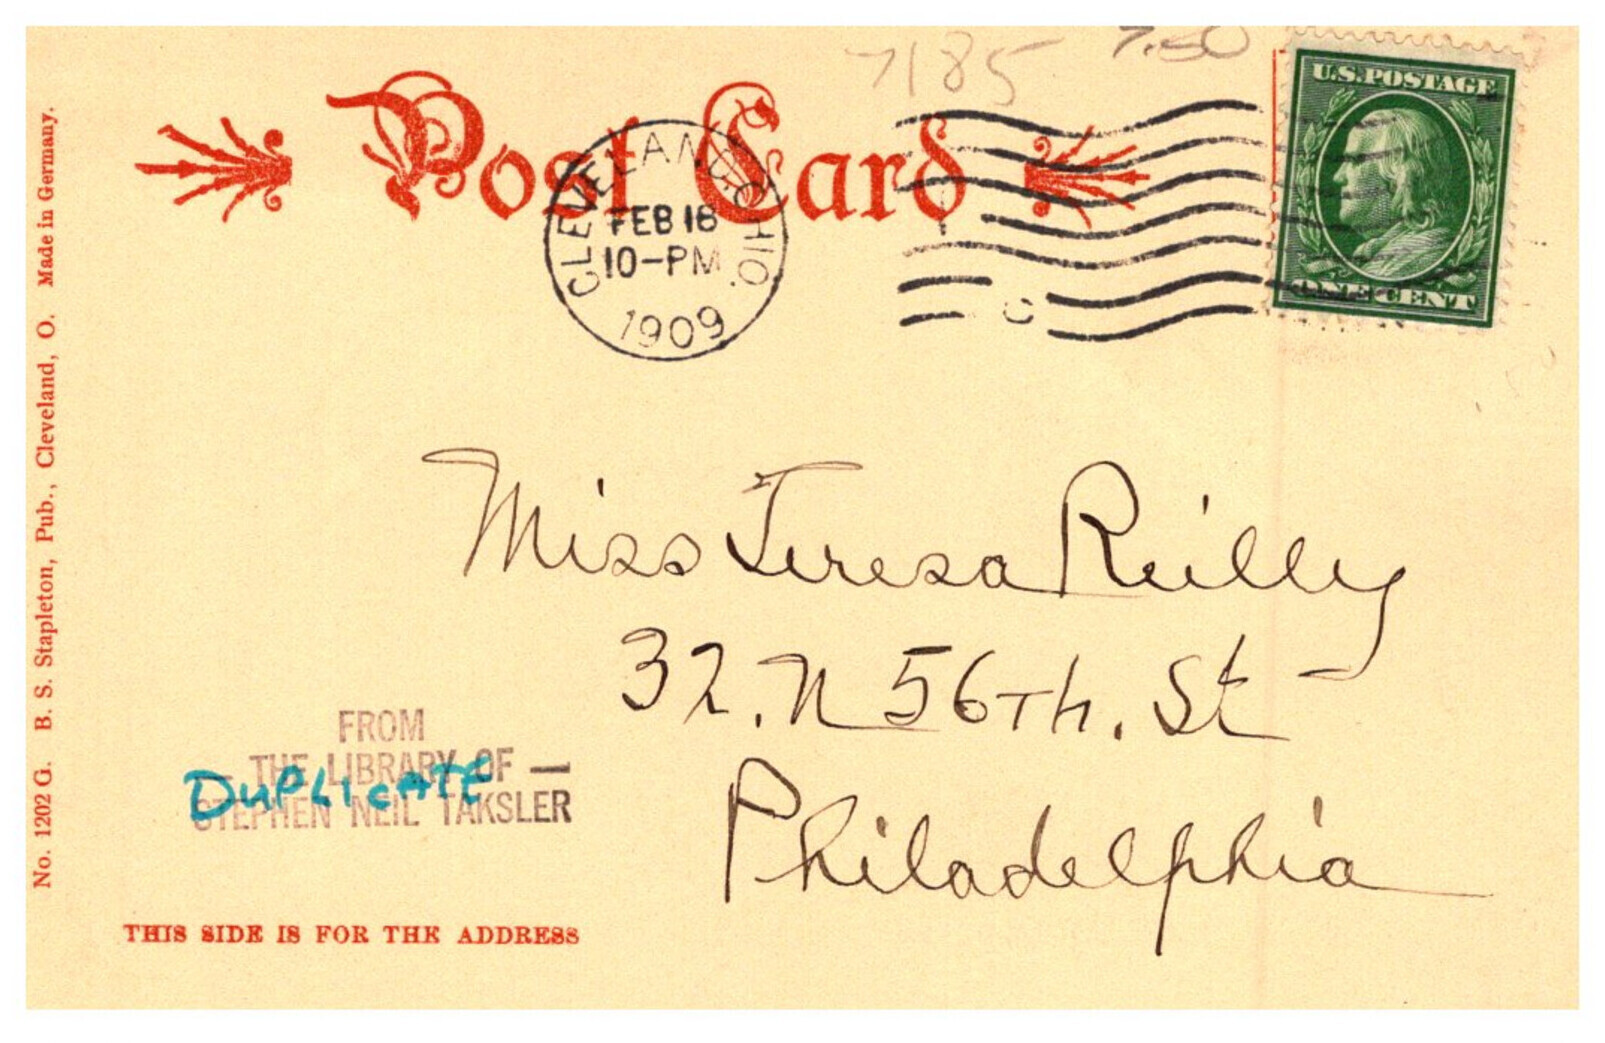 7185
7.50
Post Card
U.S.POSTAGE
ONE CENT
CLEVELAND, OHIO.
FEB 18
10-PM
1909
C
Miss Teresa Reilly
32. N 56Th. St
Philadelphia
FROM
— THE LIBRARY OF —
STEPHEN NEIL TAKSLER
DUPLICATE
THIS SIDE IS FOR THE ADDRESS
No. 1202 G. B. S. Stapleton, Pub., Cleveland, O. Made in Germany.